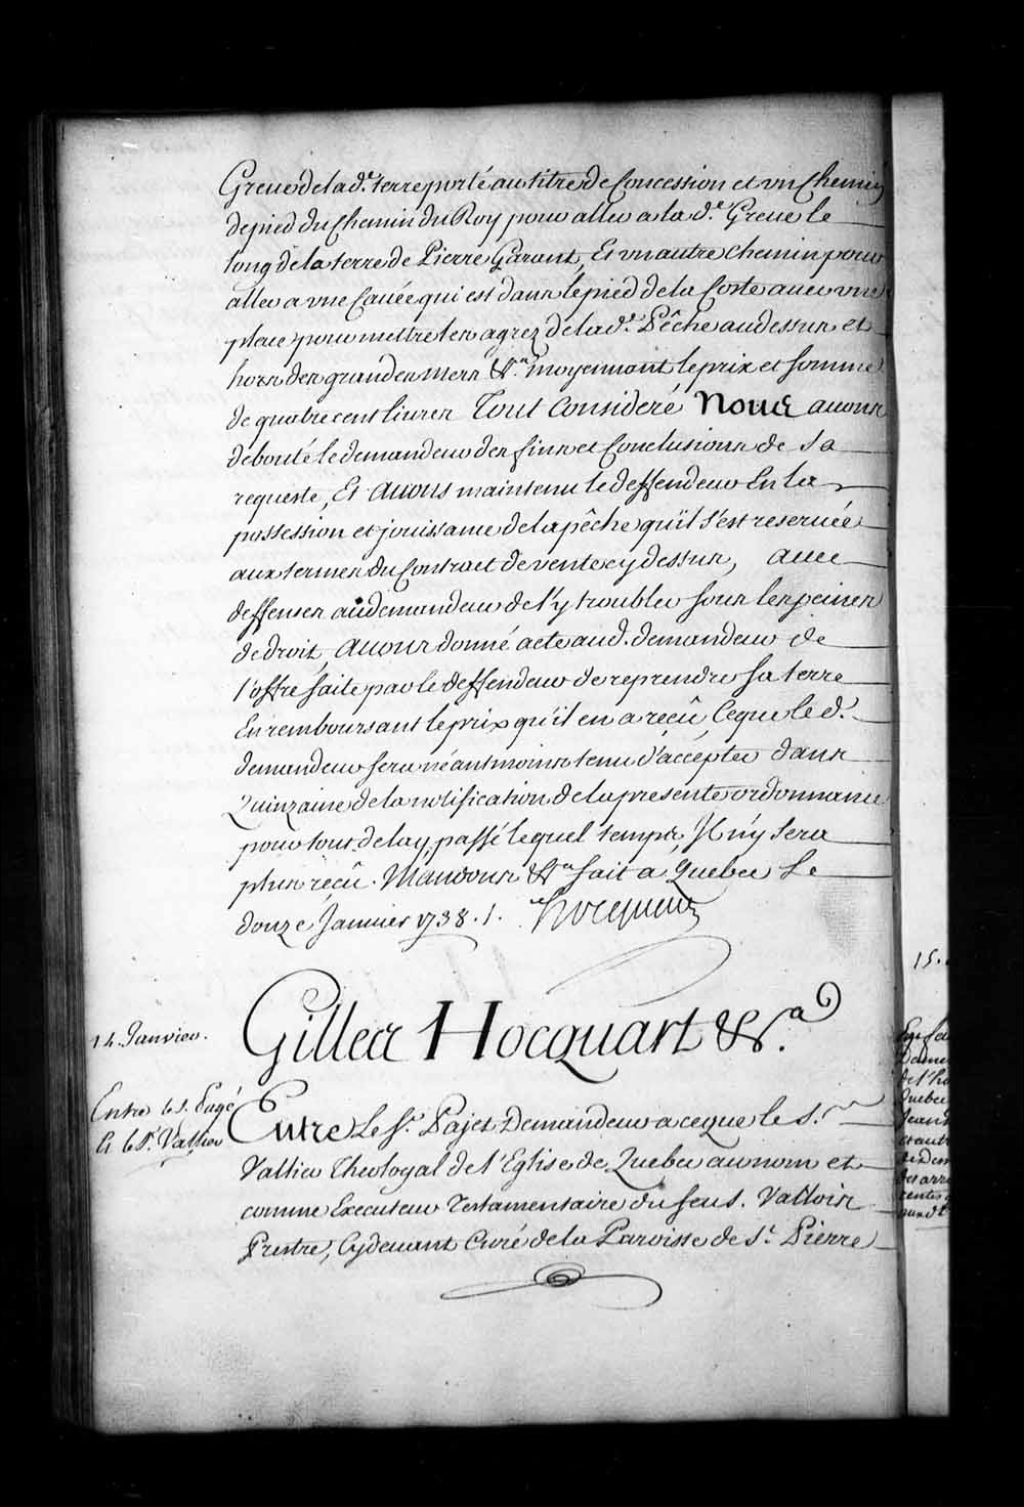 Greue de la d.e terre porté au titre de Concession et vn Chemin
de pied du Chemin du Roy pour aller a la d.e Greue le
long de la terre de Pierre Garant, Et vn autre chemin pour
aller a vne Cauée qui est dans le pied de la Coste auec vne
place pour mettre les agrez de la d.e Pêche au dessus et
hors des grandes mers &.a moyennant le prix et somme
de quatre cent liures Tout Consideré Nous auons
débouté le demandeur des fins et Conclusions de sa
requeste, Et Auons maintenu le deffendeur En la
possession et jouissance de la pêche qu'il s'est reseruée
aux termes du Contract de vente cy dessus, auec
deffenses au demandeur de l'y troubler sous les peines
de droit, Auons donné acte aud. demandeur de
l'offre faite par le deffendeur de reprendre sa terre
En remboursant le prix qu'il en a reçû, Ceque le d.
demandeur sera néantmoins tenu d'accépter dans
Quinzaine de la notification de la presente ordonnance
pour tout delay, passé lequel temps, Il n'y sera
plus reçû. Mandons &.a fait a Quebec Le
douze Januier 1738. /. Hocquart
14. Januier.
Gilles Hocquart &.a
Entre le S. Pagé
Et le S.r Vallier
Entre Le S.r Pajet Demandeur a ceque le S.
Vallier Theologal de l'Eglise de Quebec au nom et
comme Executeur Testamentaire du feu S. Vallois
Prestre, Cydeuant Curé de la Paroisse de S.t Pierre
15.
de l'ho
Quebec